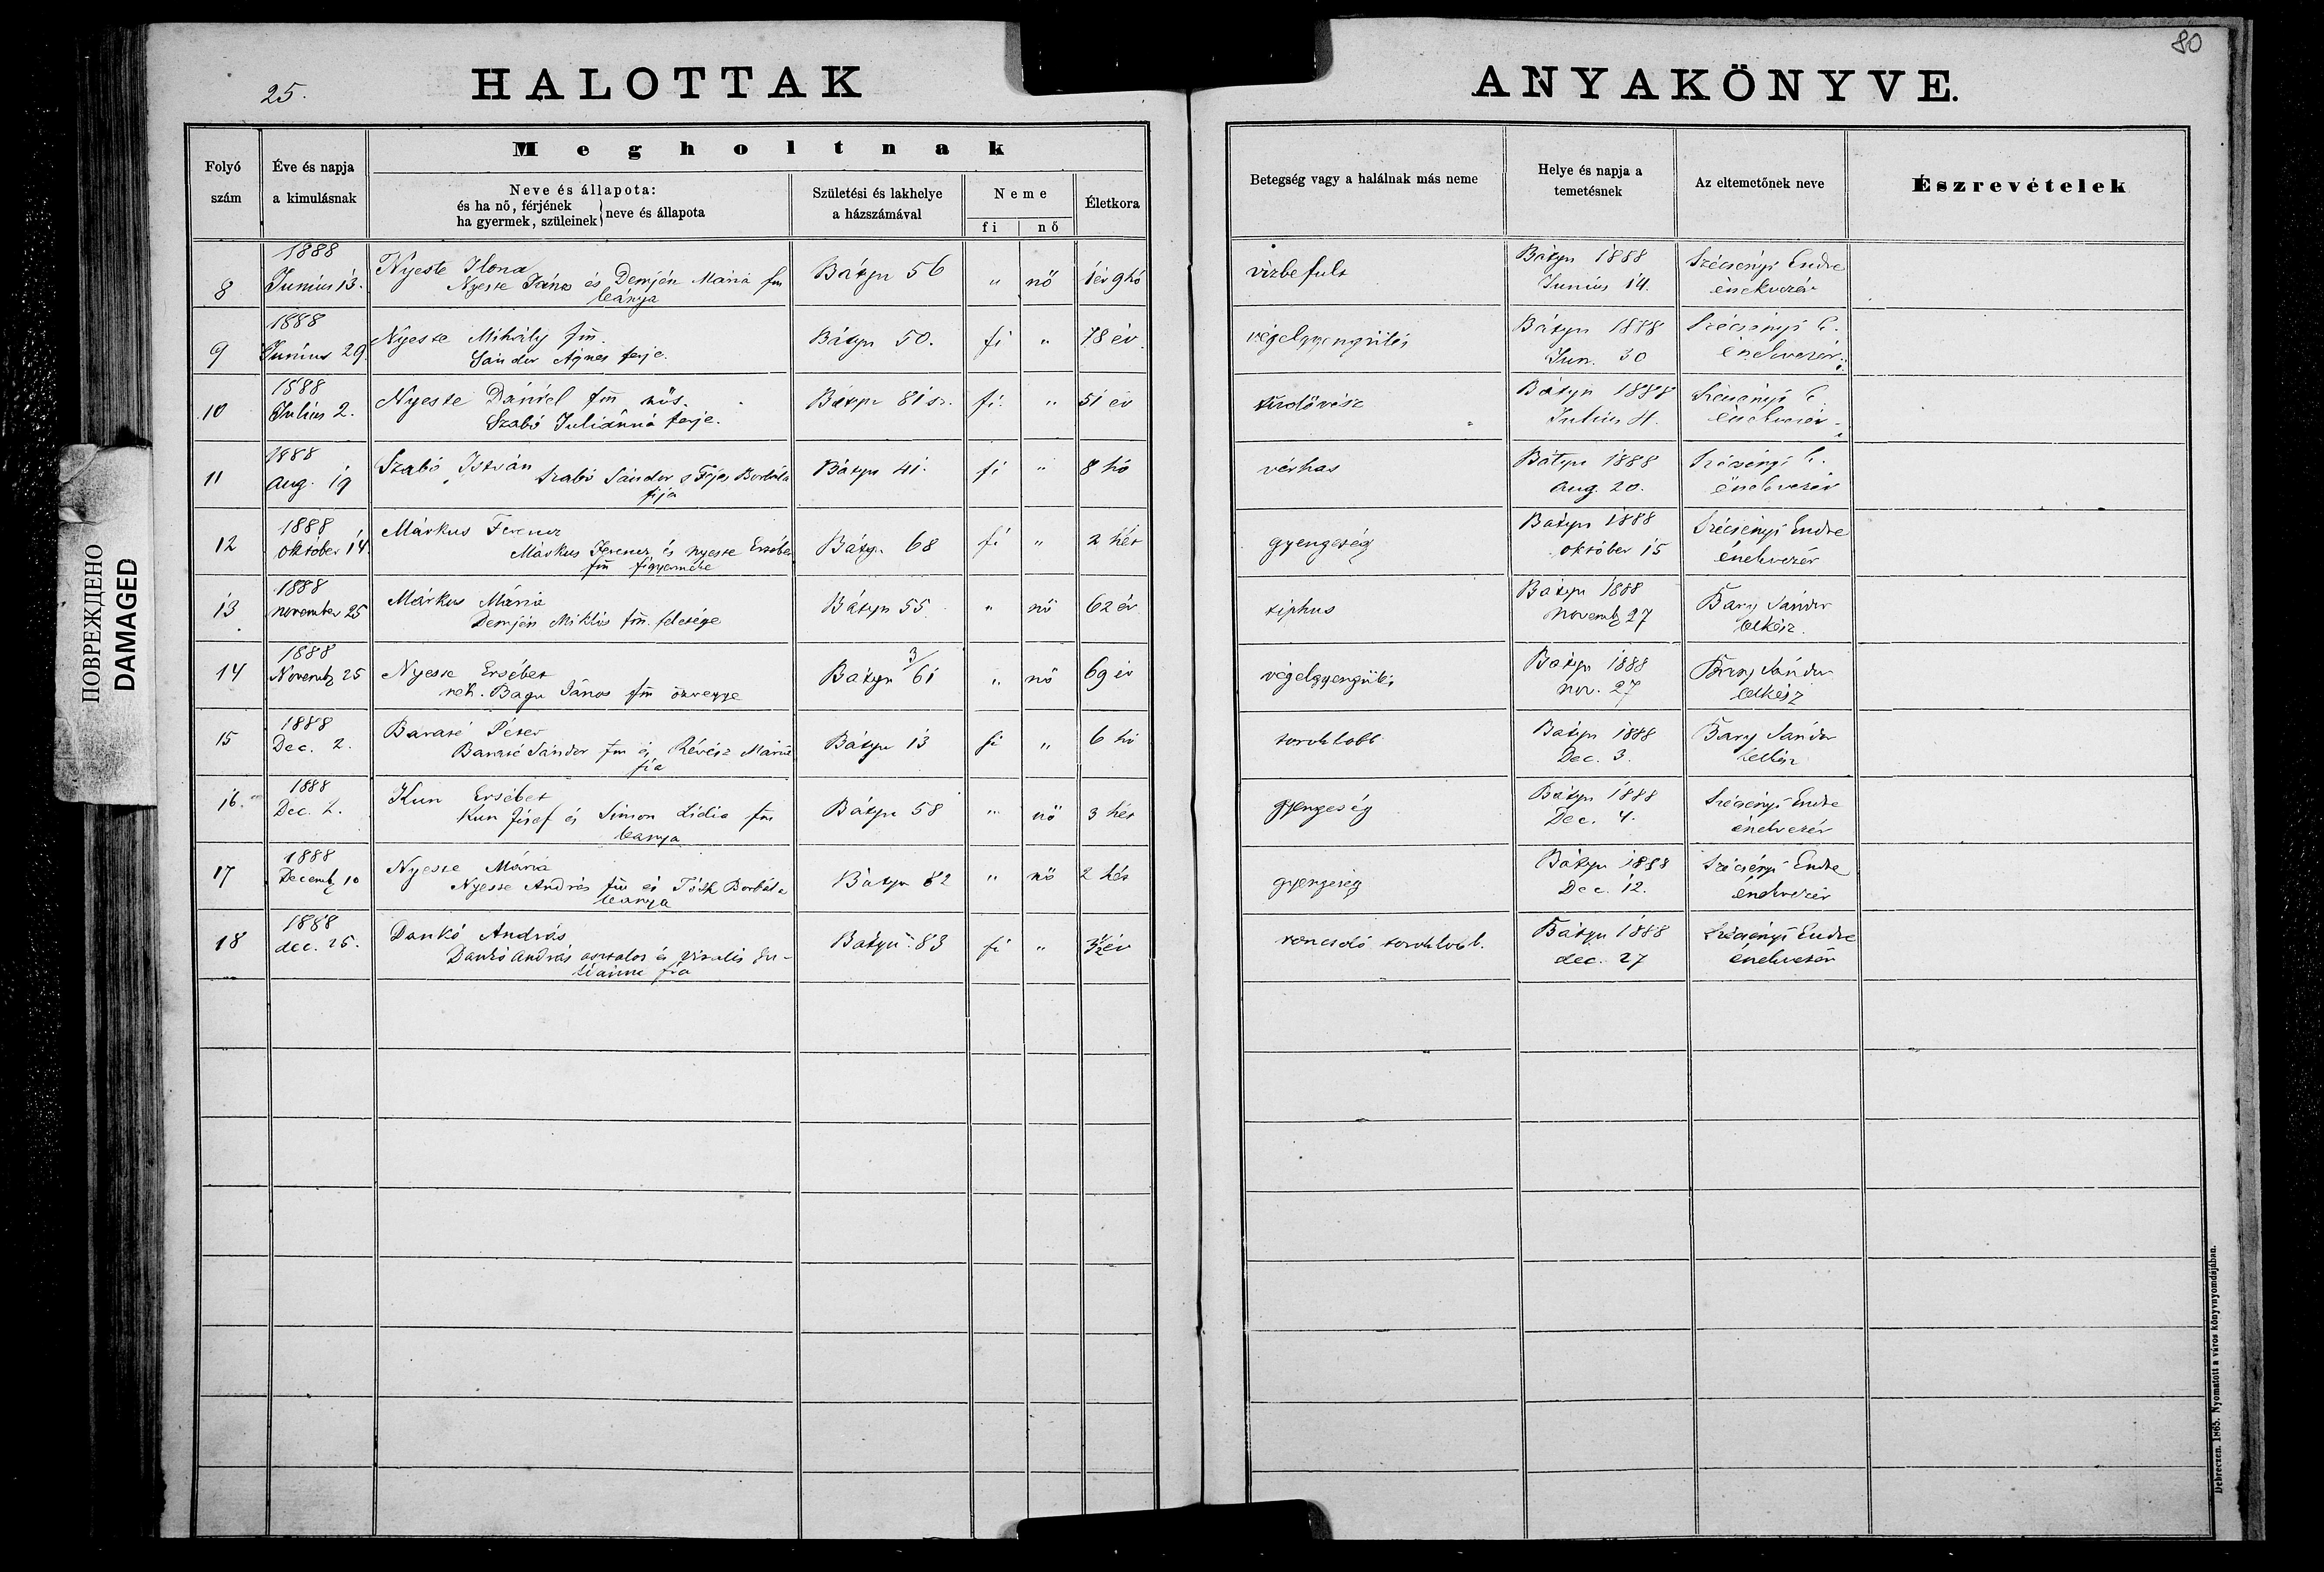 80
25.
HALOTTAK
ANYAKÖNYVE.
Folyó szám
Éve és napja a kimulásnak
Megholtnak
Neve és állapota:
és ha nő, férjének
ha gyermek, szüleinek
neve és állapota
Születési és lakhelye a házszámával
Neme
fi
nő
Életkora
Betegség vagy a halálnak más neme
Helye és napja a temetésnek
Az eltemetőnek neve
Észrevételek
8
1888
Junius 13.
Nyeste Ilona
Nyeste János és Demjén Mária fm
leánya
Bátyu 56
"
nő
1 év 9 hó
vizbe fult
Bátyu 1888
Junius 14.
Szécsényi Endre
énekvezér
9
1888
Junius 29.
Nyeste Mihály fm.
Sándor Ágnes ferje.
Bátyu 50.
fi
"
78 év.
végelgyengülés
Bátyu 1888
Jun. 30
Szécsényi E.
énekvezér
10
1888
Julius 2.
Nyeste Dániel fm nős.
Szabó Juliánná ferje.
Bátyu 81 sz.
fi.
"
51 év
tüdővész
Bátyu 1888
Julius 4.
Szécsényi E.
énekvezér
11
1888
Aug. 19
Szabó István
Szabó Sándor s Fejes Borbála
fija
Bátyu 41.
fi
"
8 hó
vérhas
Bátyu 1888
Aug. 20.
Szécsényi E.
énekvezér
12
1888
október 14.
Márkus Ferencz
Márkus Ferencz és Nyeste Erzsébet
fm figyermeke
Bátyu 68
fi
"
2 hét
gyengeség
Bátyu 1888
október 15
Szécsényi Endre
énekvezér
13
1888
november 25
Márkus Mária
Demjén Miklós fm. felesége
Bátyu 55
"
nő
62 év
tiphus
Bátyu 1888
novemb 27
Bary Sándor
lelkész.
14
1888
Novemb 25
Nyeste Ersébet
néh. Bagu János fm özvegye
Bátyu 3/61
"
nő
69 év
végelgyengülés
Bátyu 1888
nov. 27
Bary Sándor
lelkész
15
1888
Dec. 2.
Péter
Sándor fm és Révész Mária
fia
Bátyu 13
fi
"
6 hó
toroklobb
Bátyu 1888
Dec. 3.
Bary Sándor
lelkész
16.
1888
Dec. 2.
Kun Ersébet
Kun József és Simon Lidia fm
leanya
Bátyu 58
"
nő
3 hét
gyengeség
Bátyu 1888
Dec. 4.
Szécsényi Endre
énekvezér
17
1888
Decemb 10
Nyeste Mária
Nyeste András fm és Tóth Borbála
leanya
Bátyu 82
"
nő
2 hét
gyengeség
Bátyu 1888
Dec. 12.
Szécsényi Endre
énekvezér
18
1888
dec. 25.
Dankó András
Dankó András asztalos és Ju-
liánna fia
Bátyu 83
fi
"
3 1/2 év
roncsoló toroklobb.
Bátyu 1888
dec. 27
Szécsényi Endre
énekvezér
ПОВРЕЖДЕНО
DAMAGED
Debreczen. 1865. Nyomatott a város könyvnyomdájában.